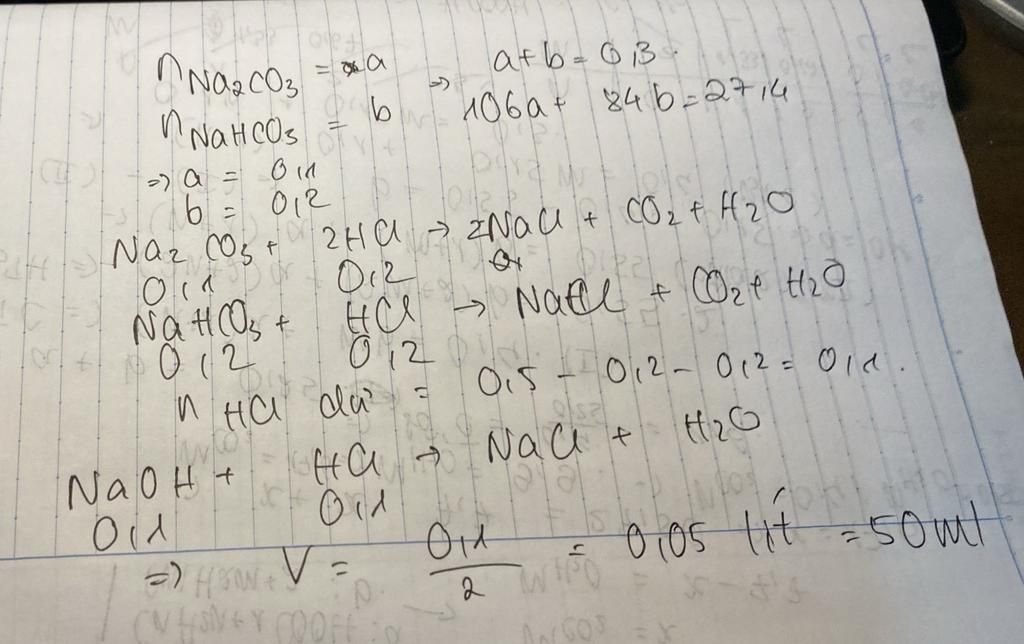 nNa2CO3 = a => a+b = 0,3.
nNaHCO3 = b 106a + 84b = 27,4
=> a = 0,1
b = 0,2
Na2CO3 + 2HCl → 2NaCl + CO2 + H2O
0,1 0,2
NaHCO3 + HCl → NaCl + CO2 + H2O
0,2 0,2
n HCl dư = 0,5 - 0,2 - 0,2 = 0,1.
NaOH + HCl → NaCl + H2O
0,1 0,1
=> V = 0,1/2 = 0,05 lít = 50ml